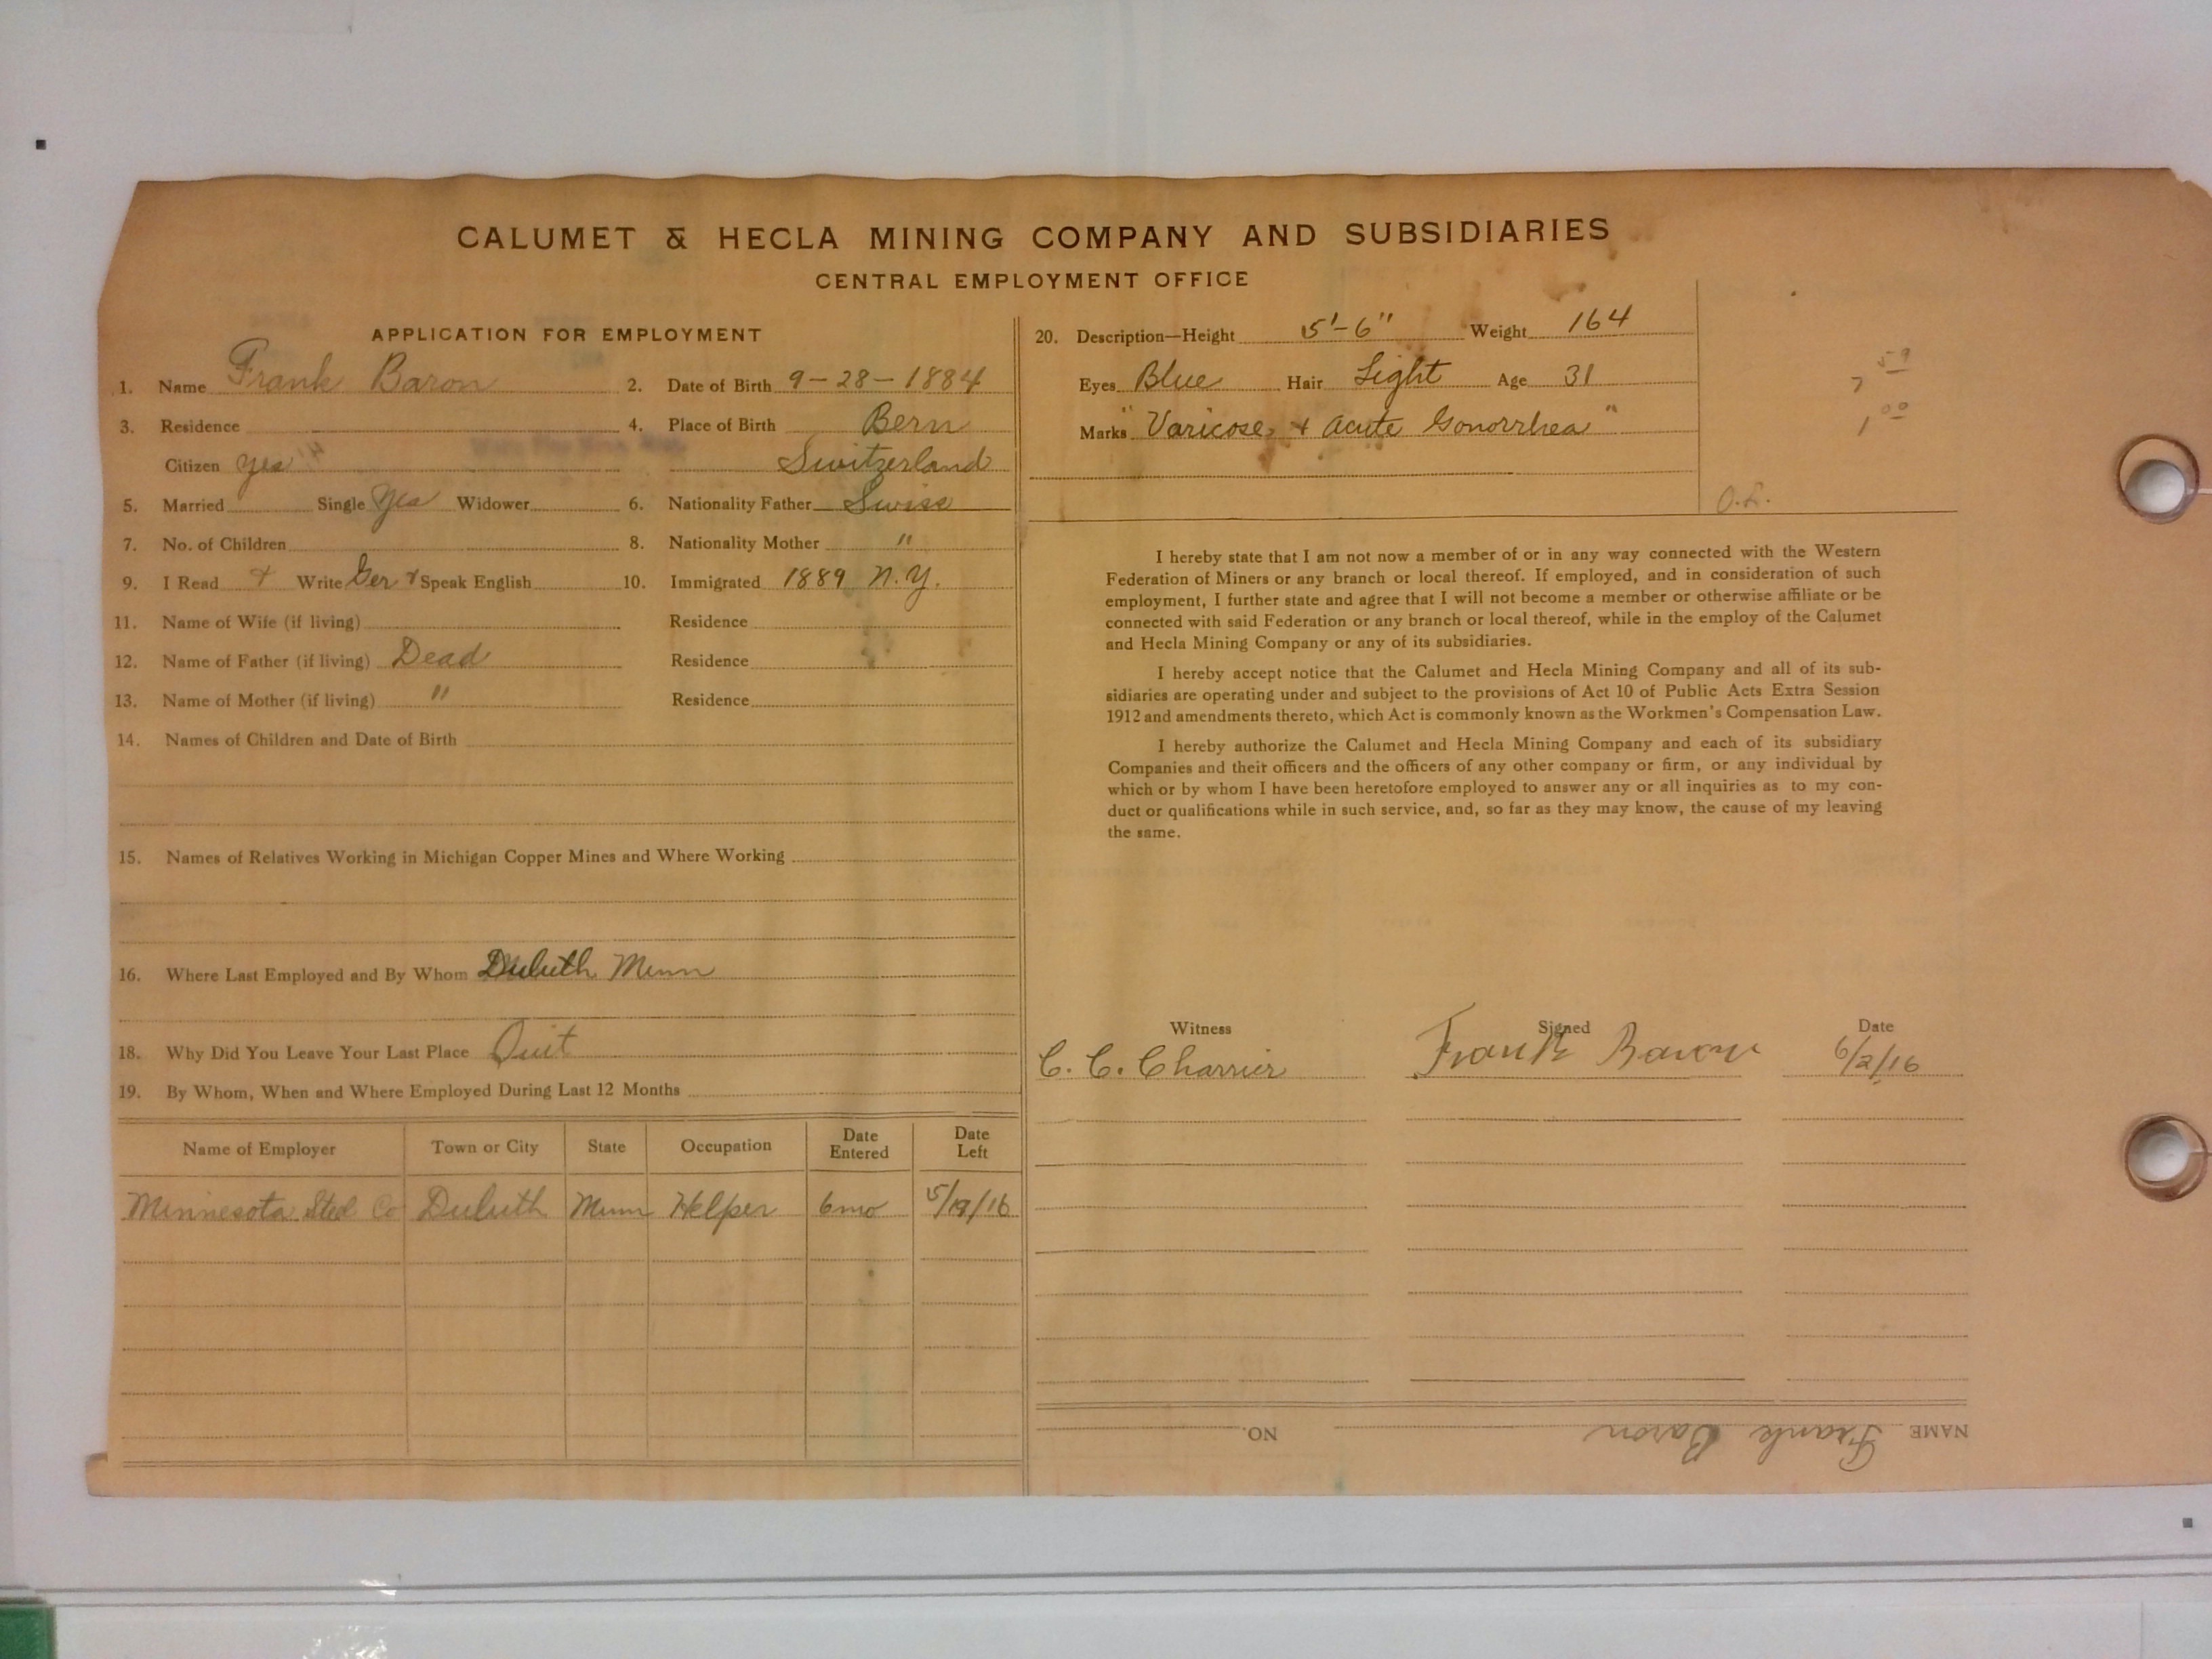 CALUMET & HECLA MINING COMPANY AND SUBSIDIARIES
CENTRAL EMPLOYMENT OFFICE
APPLICATION FOR EMPLOYMENT
1. Name Frank Baron 2. Date of Birth 9-28-1884
3. Residence 4. Place of Birth Bern
Citizen yes Switzerland
5. Married Single Yes Widower 6. Nationality Father Swiss
7. No. of Children 8. Nationality Mother "
9. I Read + Write Ger + Speak English 10. Immigrated 1889 N.Y.
11. Name of Wife (if living) Residence
12. Name of Father (if living) Dead Residence
13. Name of Mother (if living) " Residence
14. Names of Children and Date of Birth
15. Names of Relatives Working in Michigan Copper Mines and Where Working
16. Where Last Employed and By Whom Duluth Minn
18. Why Did You Leave Your Last Place Quit
19. By Whom, When and Where Employed During Last 12 Months
Name of Employer Town or City State Occupation Date Entered Date Left
Minnesota Steel Co Duluth Minn Helper 6 mo 5/19/16
20. Description—Height 5'-6" Weight 164
Eyes Blue Hair Light Age 31
Marks "Varicose, + Acute Gonorrhea"
7 59
1 00
O.L.
I hereby state that I am not now a member of or in any way connected with the Western
Federation of Miners or any branch or local thereof. If employed, and in consideration of such
employment, I further state and agree that I will not become a member or otherwise affiliate or be
connected with said Federation or any branch or local thereof, while in the employ of the Calumet
and Hecla Mining Company or any of its subsidiaries.
I hereby accept notice that the Calumet and Hecla Mining Company and all of its sub-
sidiaries are operating under and subject to the provisions of Act 10 of Public Acts Extra Session
1912 and amendments thereto, which Act is commonly known as the Workmen's Compensation Law.
I hereby authorize the Calumet and Hecla Mining Company and each of its subsidiary
Companies and their officers and the officers of any other company or firm, or any individual by
which or by whom I have been heretofore employed to answer any or all inquiries as to my con-
duct or qualifications while in such service, and, so far as they may know, the cause of my leaving
the same.
Witness Signed Date
C. C. Charrier Frank Baron 6/2/16
NAME Frank Baron NO.